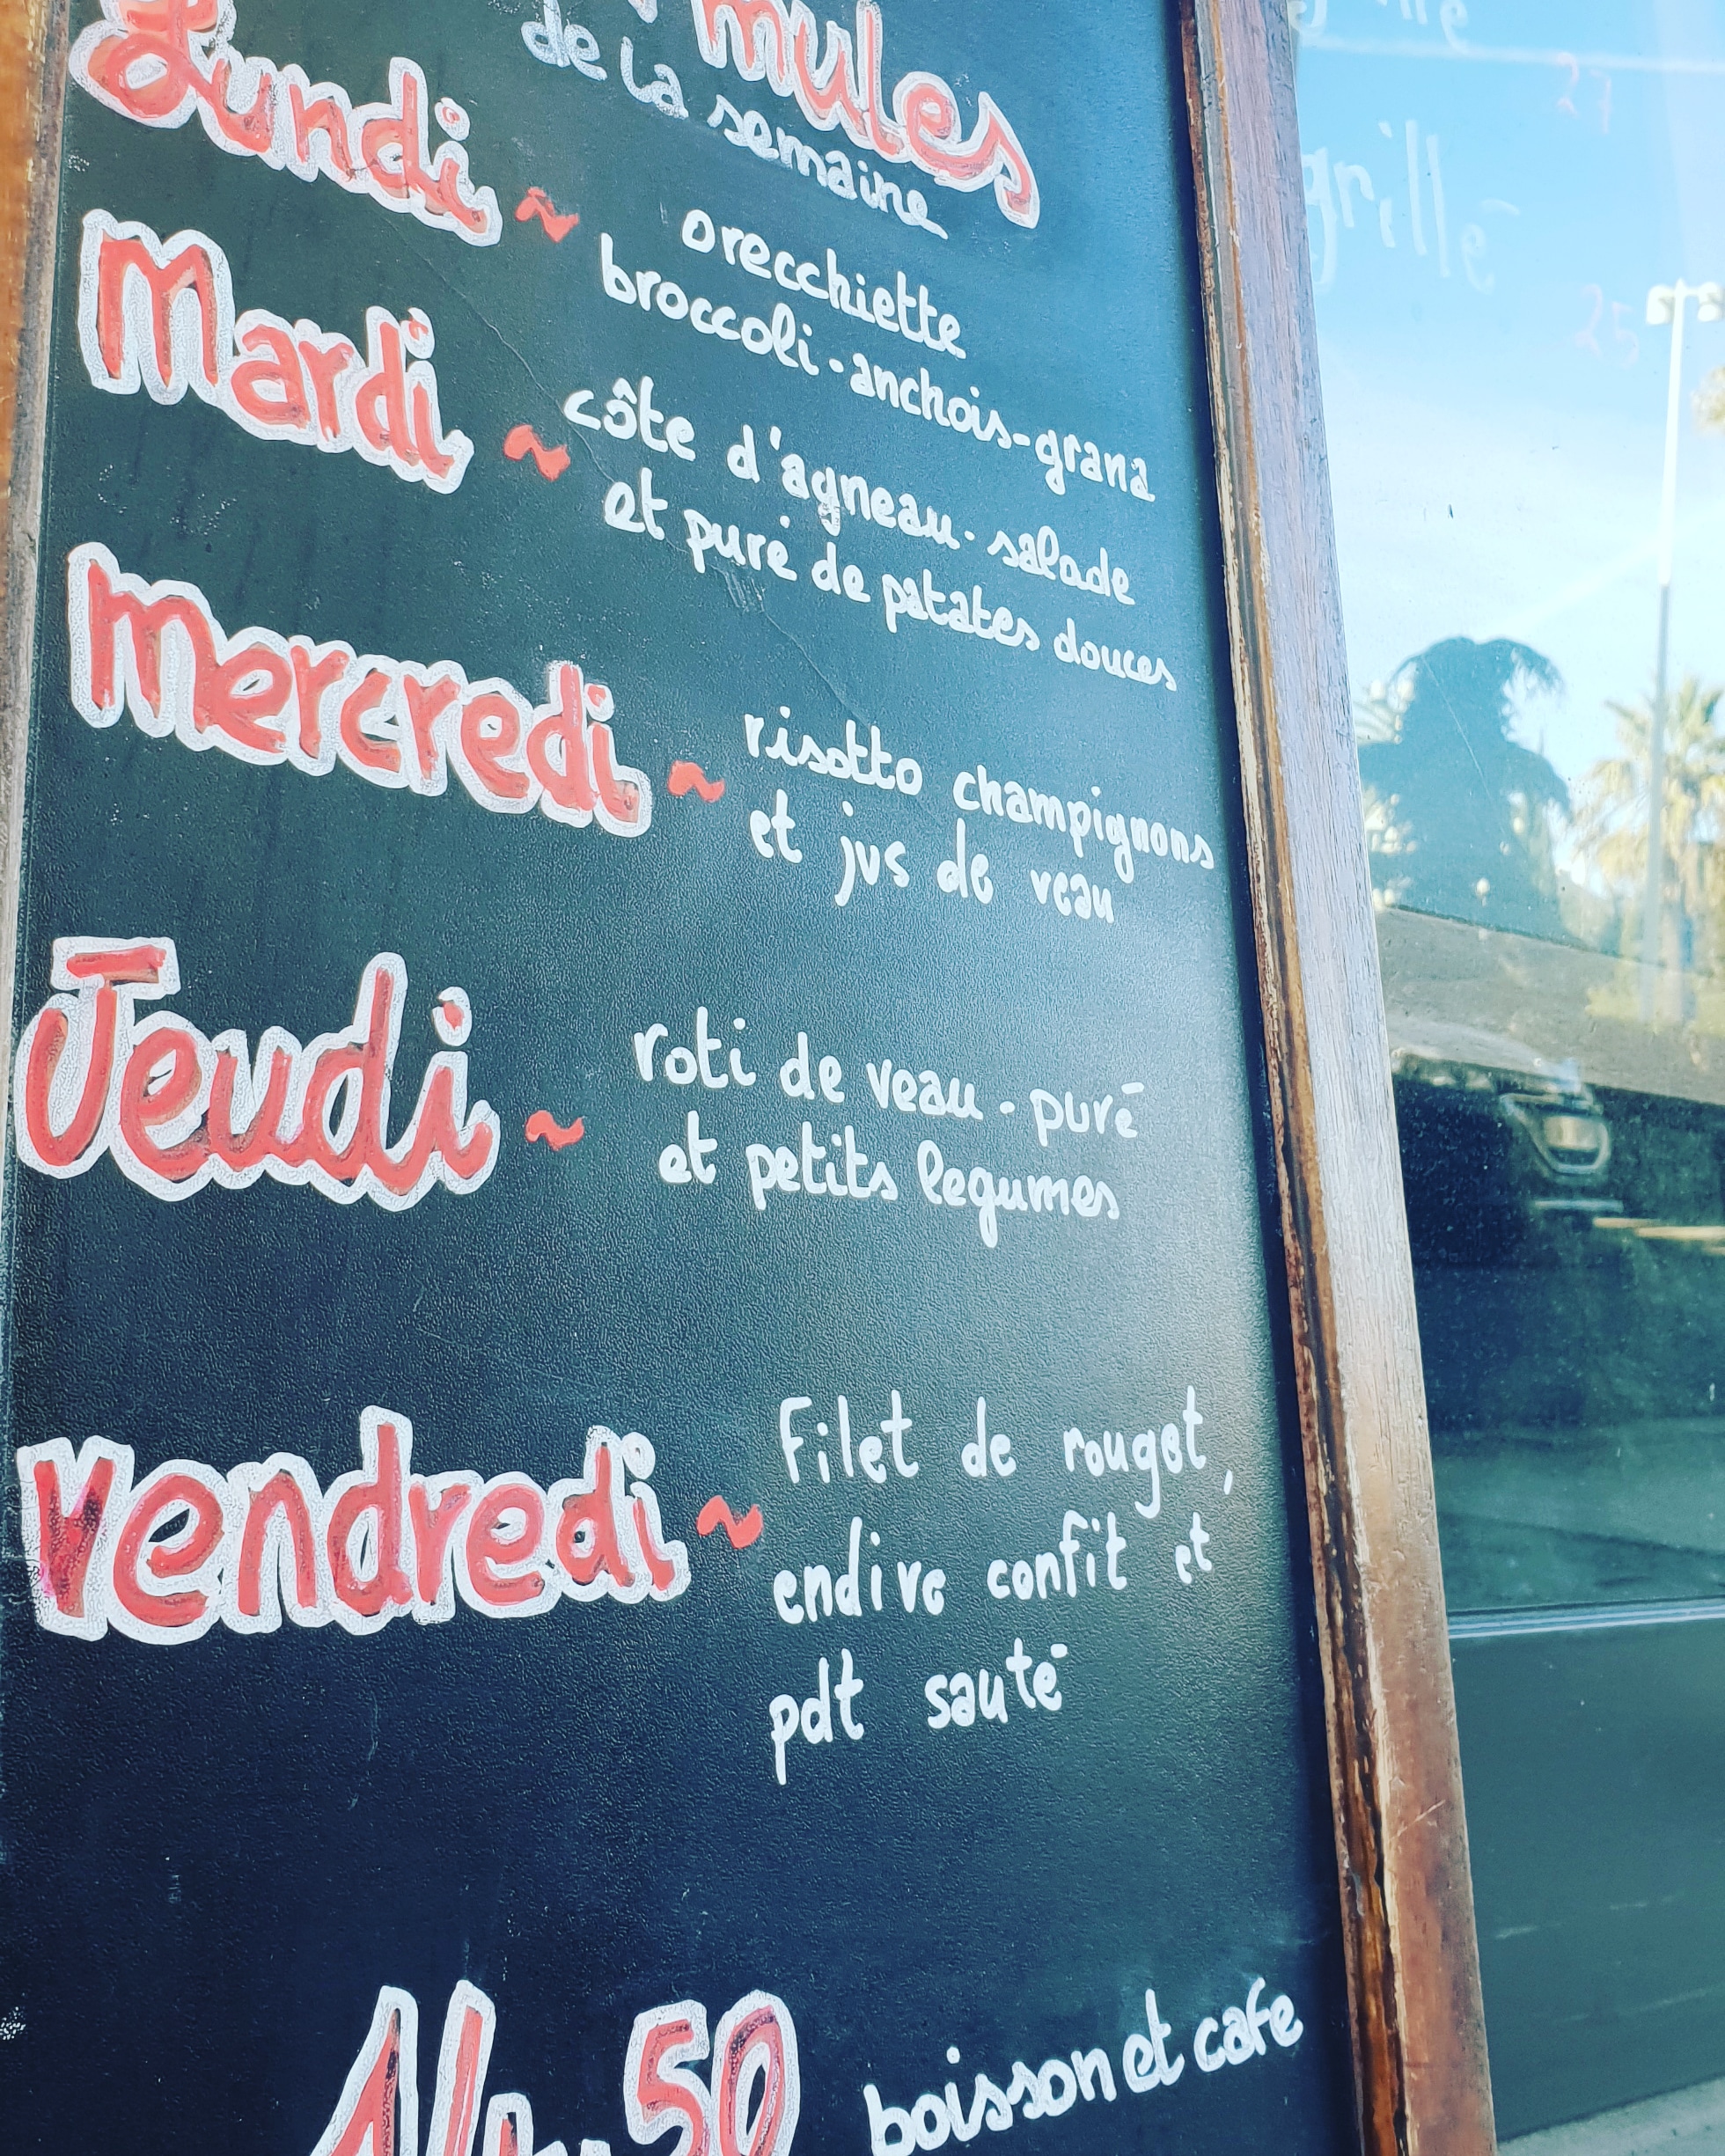 mules
de la semaine
Lundi ~ orecchiette
broccoli-anchois-grana
Mardi ~ côte d'agneau-salade
et puré de patates douces
Mercredi ~ risotto champignons
et jus de veau
Jeudi ~ roti de veau-puré
et petits legumes
Vendredi ~ Filet de rouget,
endive confit et
pdt sauté
14,50 boisson et cafe
grillé
27
25